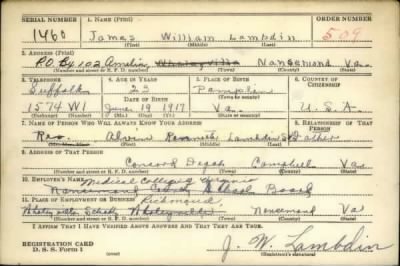 SERIAL NUMBER 1. NAME (Print) ORDER NUMBER
1460 James William Lambdin 509
(First) (Middle) (Last)
2. ADDRESS (Print)
P.O. Bx 102 Amelia, Whaleyville Nansemond Va.
(Number and street or R. F. D. number) (Town) (County) (State)
3. TELEPHONE 4. AGE IN YEARS 5. PLACE OF BIRTH 6. COUNTRY OF CITIZENSHIP
Suffolk 23 Pamplin
DATE OF BIRTH (Town or county)
1574 W1 June 19 1917 Va. U.S.A.
7. NAME OF PERSON WHO WILL ALWAYS KNOW YOUR ADDRESS 8. RELATIONSHIP OF THAT PERSON
Rev. Alvin Lambdin Father
9. ADDRESS OF THAT PERSON
Concord Depot Campbell Va
(Number and street or R. F. D. number) (Town) (County) (State)
10. EMPLOYER'S NAME
Medical College Virginia
Nansemond County School Board
11. PLACE OF EMPLOYMENT OR BUSINESS
Richmond,
Whaleyville School Whaleyville Nansemond Va
(Number and street or R. F. D. number) (Town) (County) (State)
I AFFIRM THAT I HAVE VERIFIED ABOVE ANSWERS AND THAT THEY ARE TRUE.
REGISTRATION CARD
D. S. S. Form 1
J. W. Lambdin
(Registrant's signature)